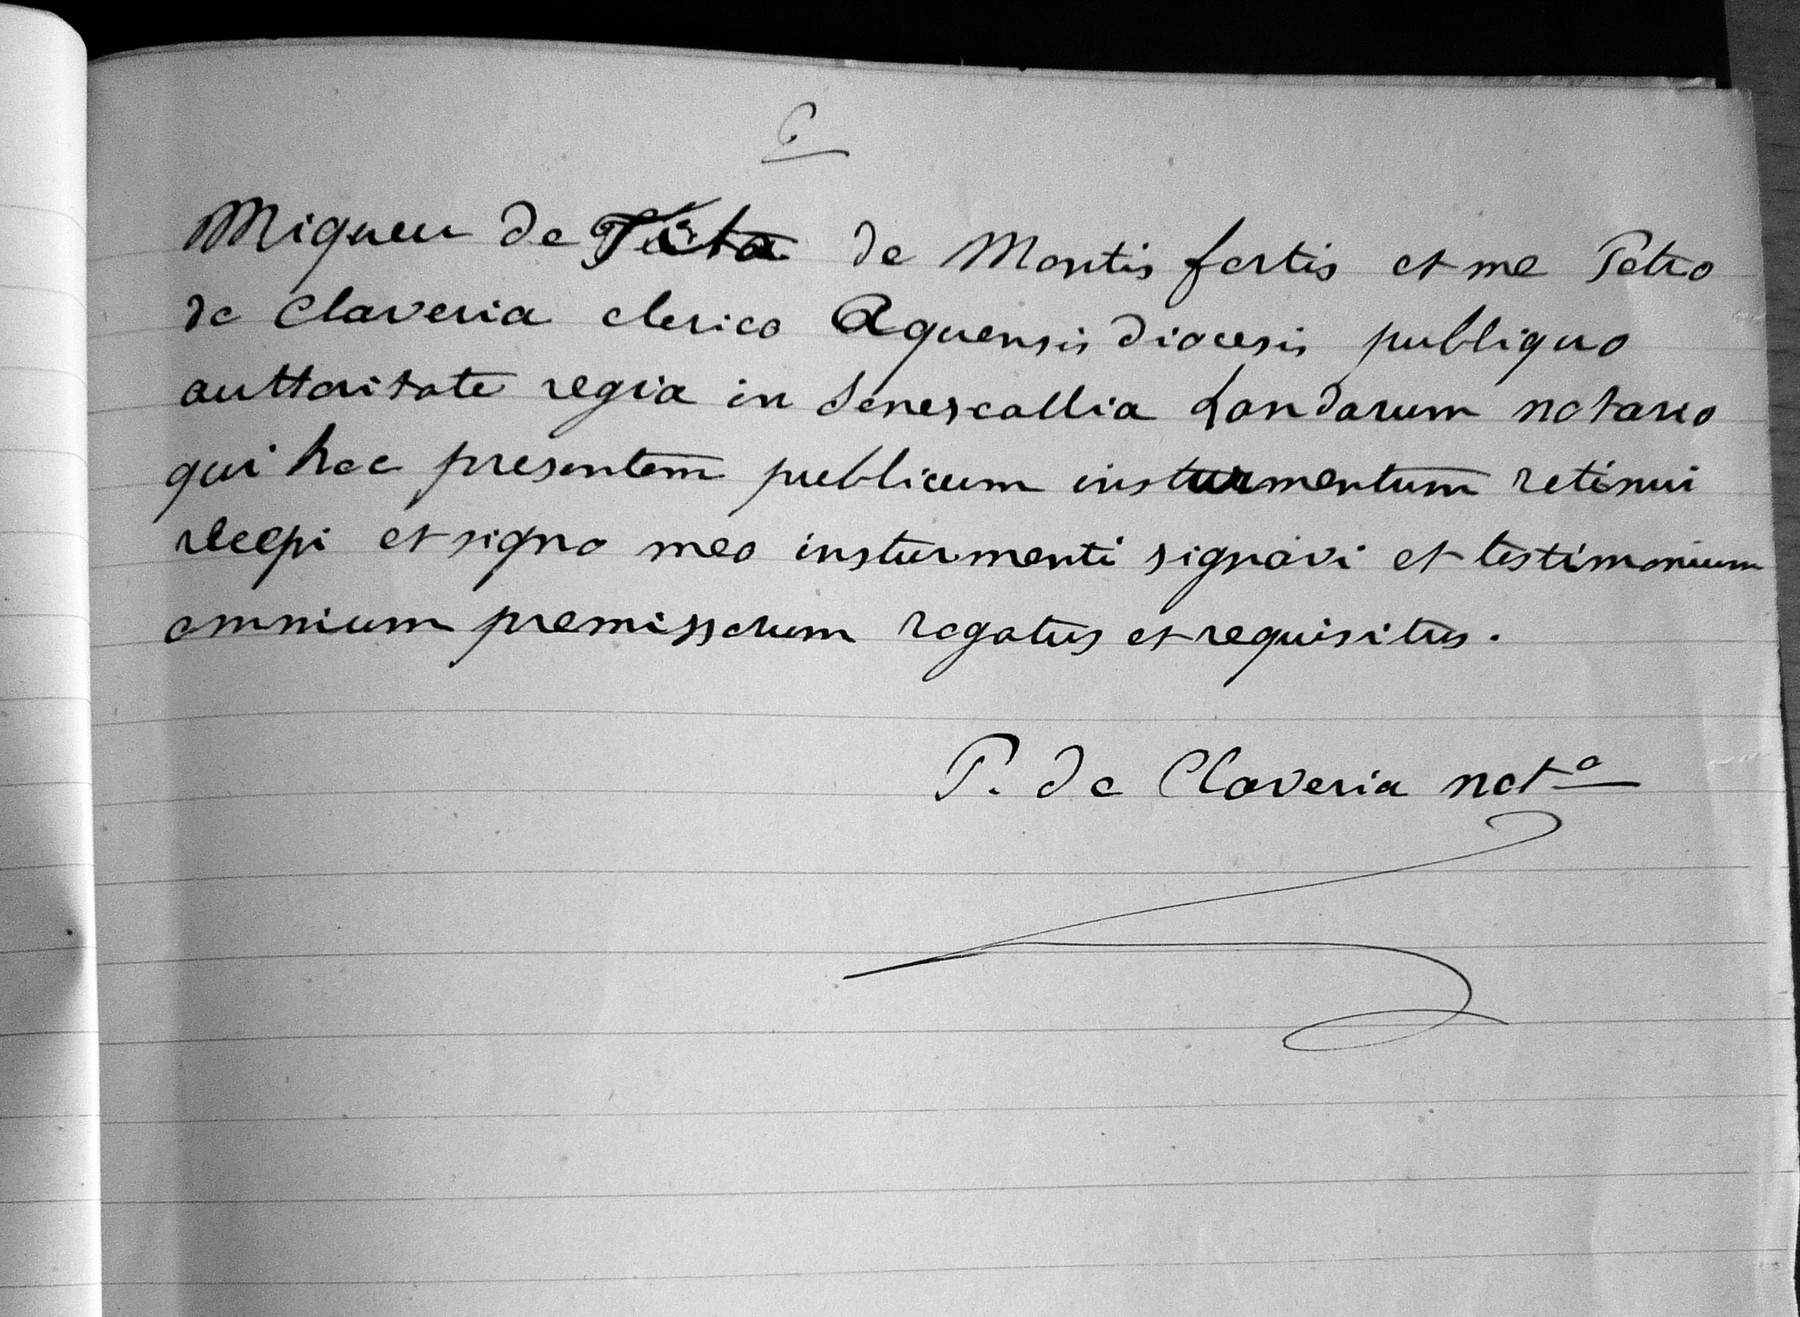 6
Miqueu de de Montis fortis et me Petro
de Claveria clerico Aquensis diocesis publiquo
auttoritate regia in Senescallia Landarum notario
qui hoc presentem publicum insturmentum retinui
recepi et signo meo insturmenti signavi et testimonium
omnium premissorum rogatus et requisitus.
P. de Claveria not°